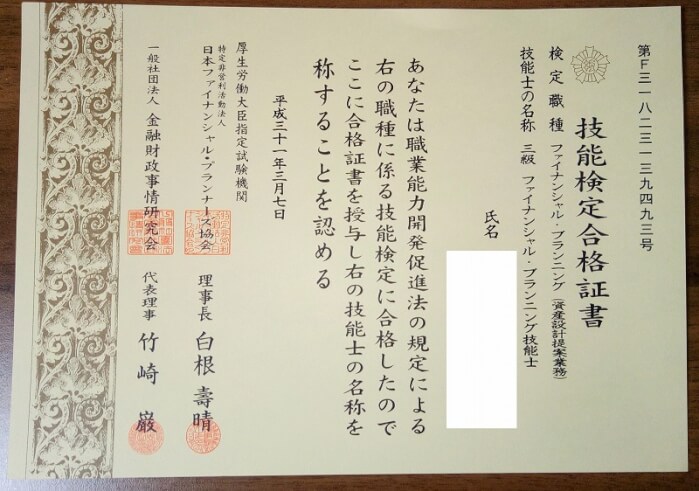 第F三一八二三一三九四九三号
技能検定合格証書
検定職種 ファイナンシャル・プランニング(資産設計提案業務)
技能士の名称 三級 ファイナンシャル・プランニング技能士
氏名
あなたは職業能力開発促進法の規定による
右の職種に係る技能検定に合格したので
ここに合格証書を授与し右の技能士の名称を
称することを認める
平成三十一年三月七日
厚生労働大臣指定試験機関
特定非営利活動法人
日本ファイナンシャル・プランナーズ協会 理事長 白根壽晴
一般社団法人 金融財政事情研究会 代表理事 竹崎巌